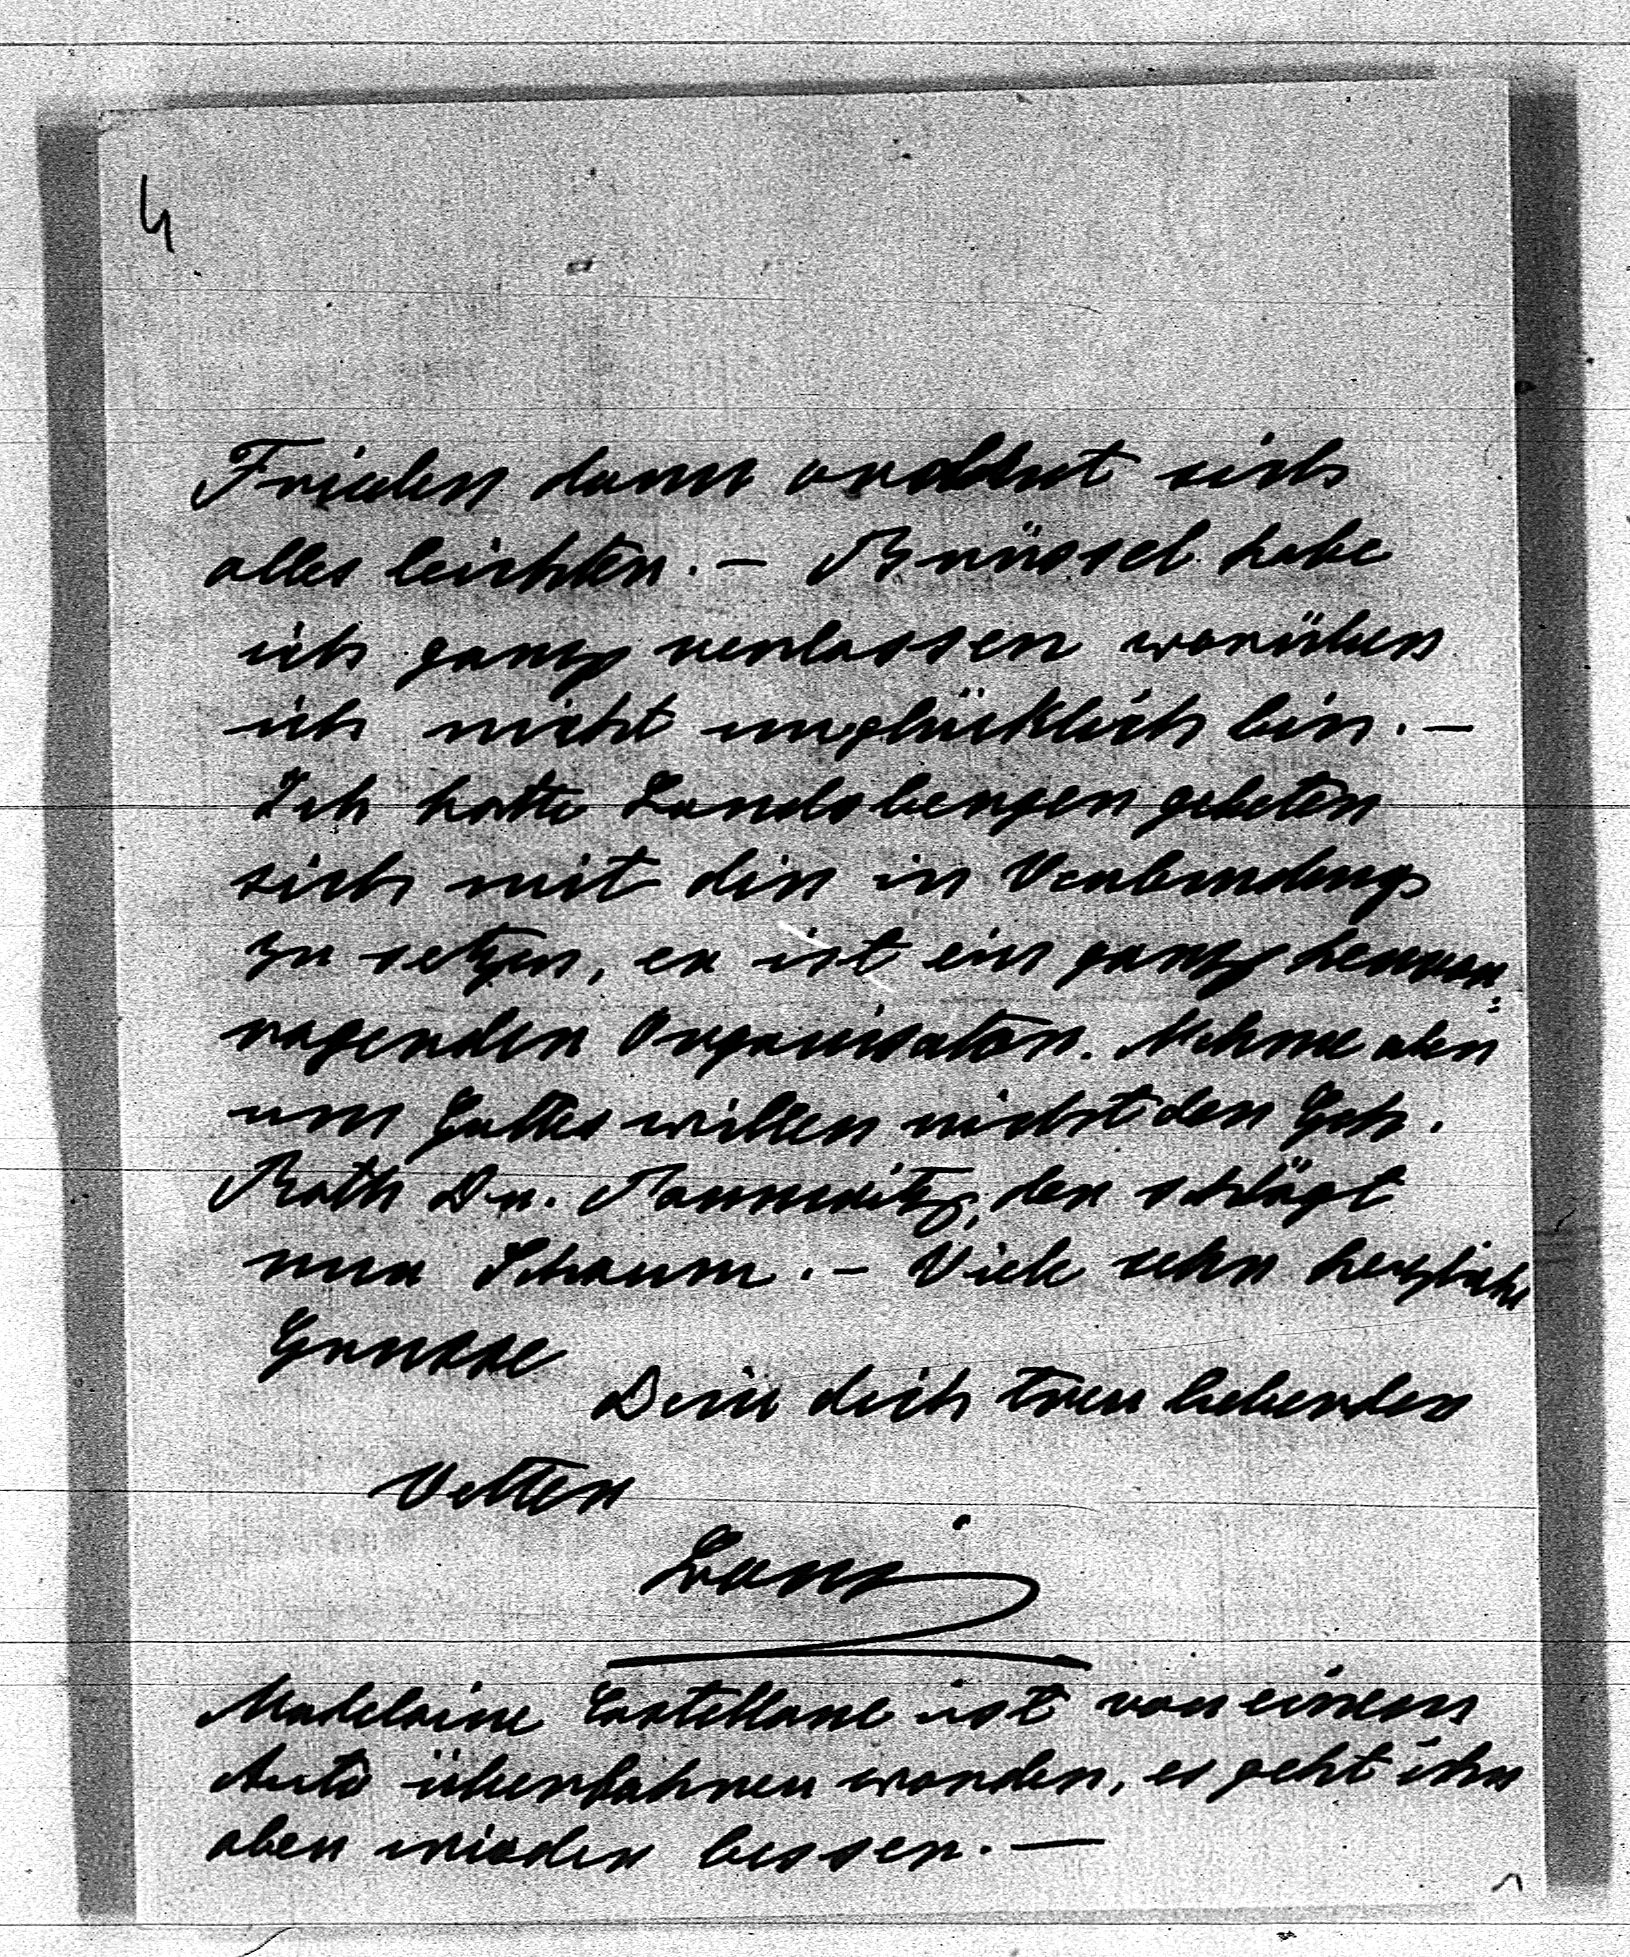 4
Frieden dann ordnet sich
alles leichter. – Brüssel habe
ich ganz verlassen worüber
ich nicht unglücklich bin. –
Ich hatte Landsberger gebeten
sich mit dir in Verbindung
zu setzen, er ist ein ganz hervor:
ragender Organisator. Nehme aber
um Gottes willen nicht den Geh.
Rath Dr. der schlägt
nur Schaum. – Viele sehr herzliche
Grüsse
Dein dich treu liebender
Vetter
Madelaine Castellane ist von einem
Auto überfahren worden, es geht ihr
aber wieder besser. –